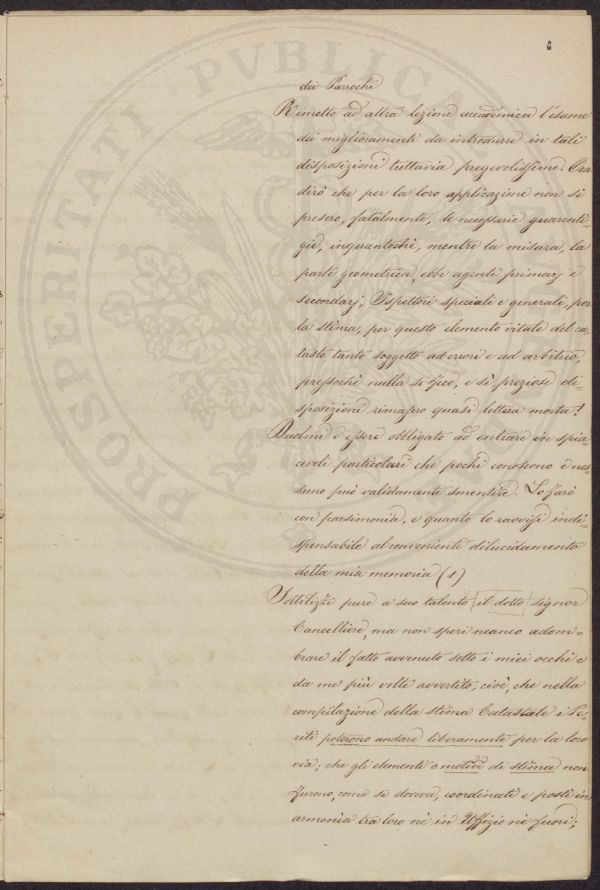 4
dei Parrochi
Rimetto ad altra lezione accademica l'esame
dei miglioramenti da introdurre in tali
disposizioni tuttavia pregevolissime. Ora
dirò che per la loro applicazione non si
presero, fatalmente, le necessarie guarenti-
gie, inquantochè, mentre la misura, la
parte geometrica, ebbe agenti primarj e
secondarj, Ispettori speciali e generali, per
la stima, per questo elemento vitale del ca
tasto, tanto soggetto ad errori e ad arbitrio,
pressochè nulla si fece, e sì preziose di-
sposizioni rimasero quasi lettera morta!
Duolmi d'essere obbligato ad entrare in spia-
cevoli particolari che pochi conoscono e nes
suno può validamente smentire. Lo farò
con parsimonia, e quanto lo ravvisi indi-
spensabile al conveniente dilucidamento
della mia memoria (1)
Sottilizzi pure a suo talento il dotto signor
Cancelliere, ma non speri neanco adom-
brare il fatto avvenuto sotto i miei occhi e
da me più volte avvertito, cioè, che nella
compilazione della stima Catastale i Pe-
riti poterono andare liberamente per la loro
via; che gli elementi o motivi di stima non
furono, come si doveva, coordinati e posti in
armonia tra loro nè in Uffizio nè fuori;
PROSPERITATI PVBLICAE